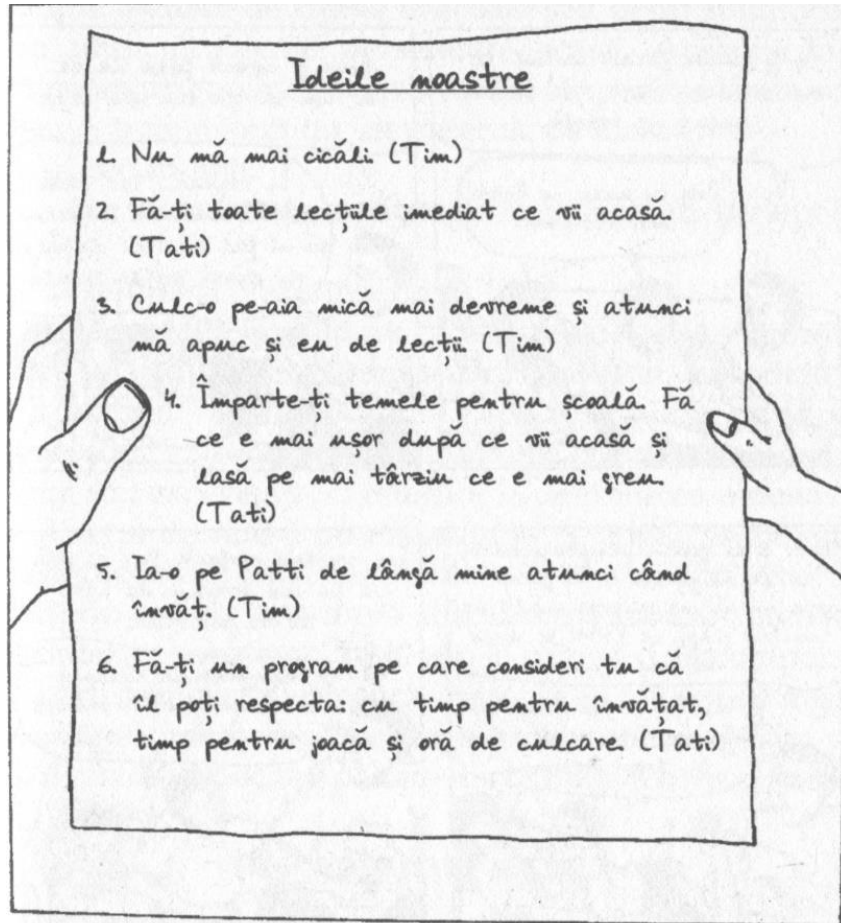 Ideile noastre
1. Nu mă mai cicăli. (Tim)
2. Fă-ți toate lecțiile imediat ce vii acasă.
(Tati)
3. Culc-o pe-aia mică mai devreme și atunci
mă apuc și eu de lecții. (Tim)
4. Împarte-ți temele pentru școală. Fă
ce e mai ușor după ce vii acasă și
lasă pe mai târziu ce e mai greu.
(Tati)
5. Ia-o pe Patti de lângă mine atunci când
învăț. (Tim)
6. Fă-ți un program pe care consideri tu că
îl poți respecta: cu timp pentru învățat,
timp pentru joacă și oră de culcare. (Tati)